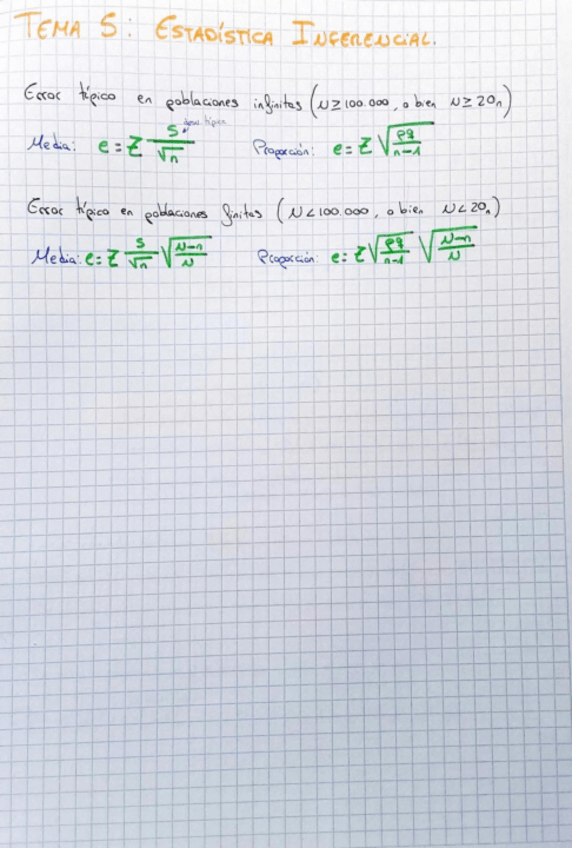 TEMA 5: ESTADÍSTICA INFERENCIAL.
Error típico en poblaciones infinitas (N ≥ 100.000, o bien N ≥ 20n)
desv. típica
Media: e = Z S/√n Proporción: e = Z √(pq/(n-1))
Error típico en poblaciones finitas (N < 100.000, o bien N < 20n)
Media: e = Z S/√n √((N-n)/N) Proporción: e = Z √(pq/(n-1)) √((N-n)/N)